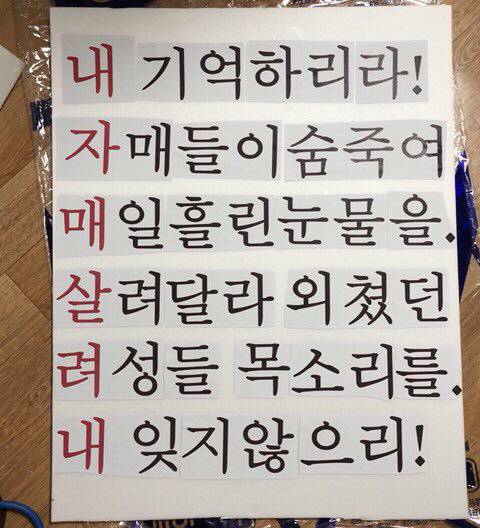 내 기억하리라!
자매들이숨죽여
매일흘린눈물을.
살려달라 외쳤던
려성들 목소리를.
내 잊지않으리!